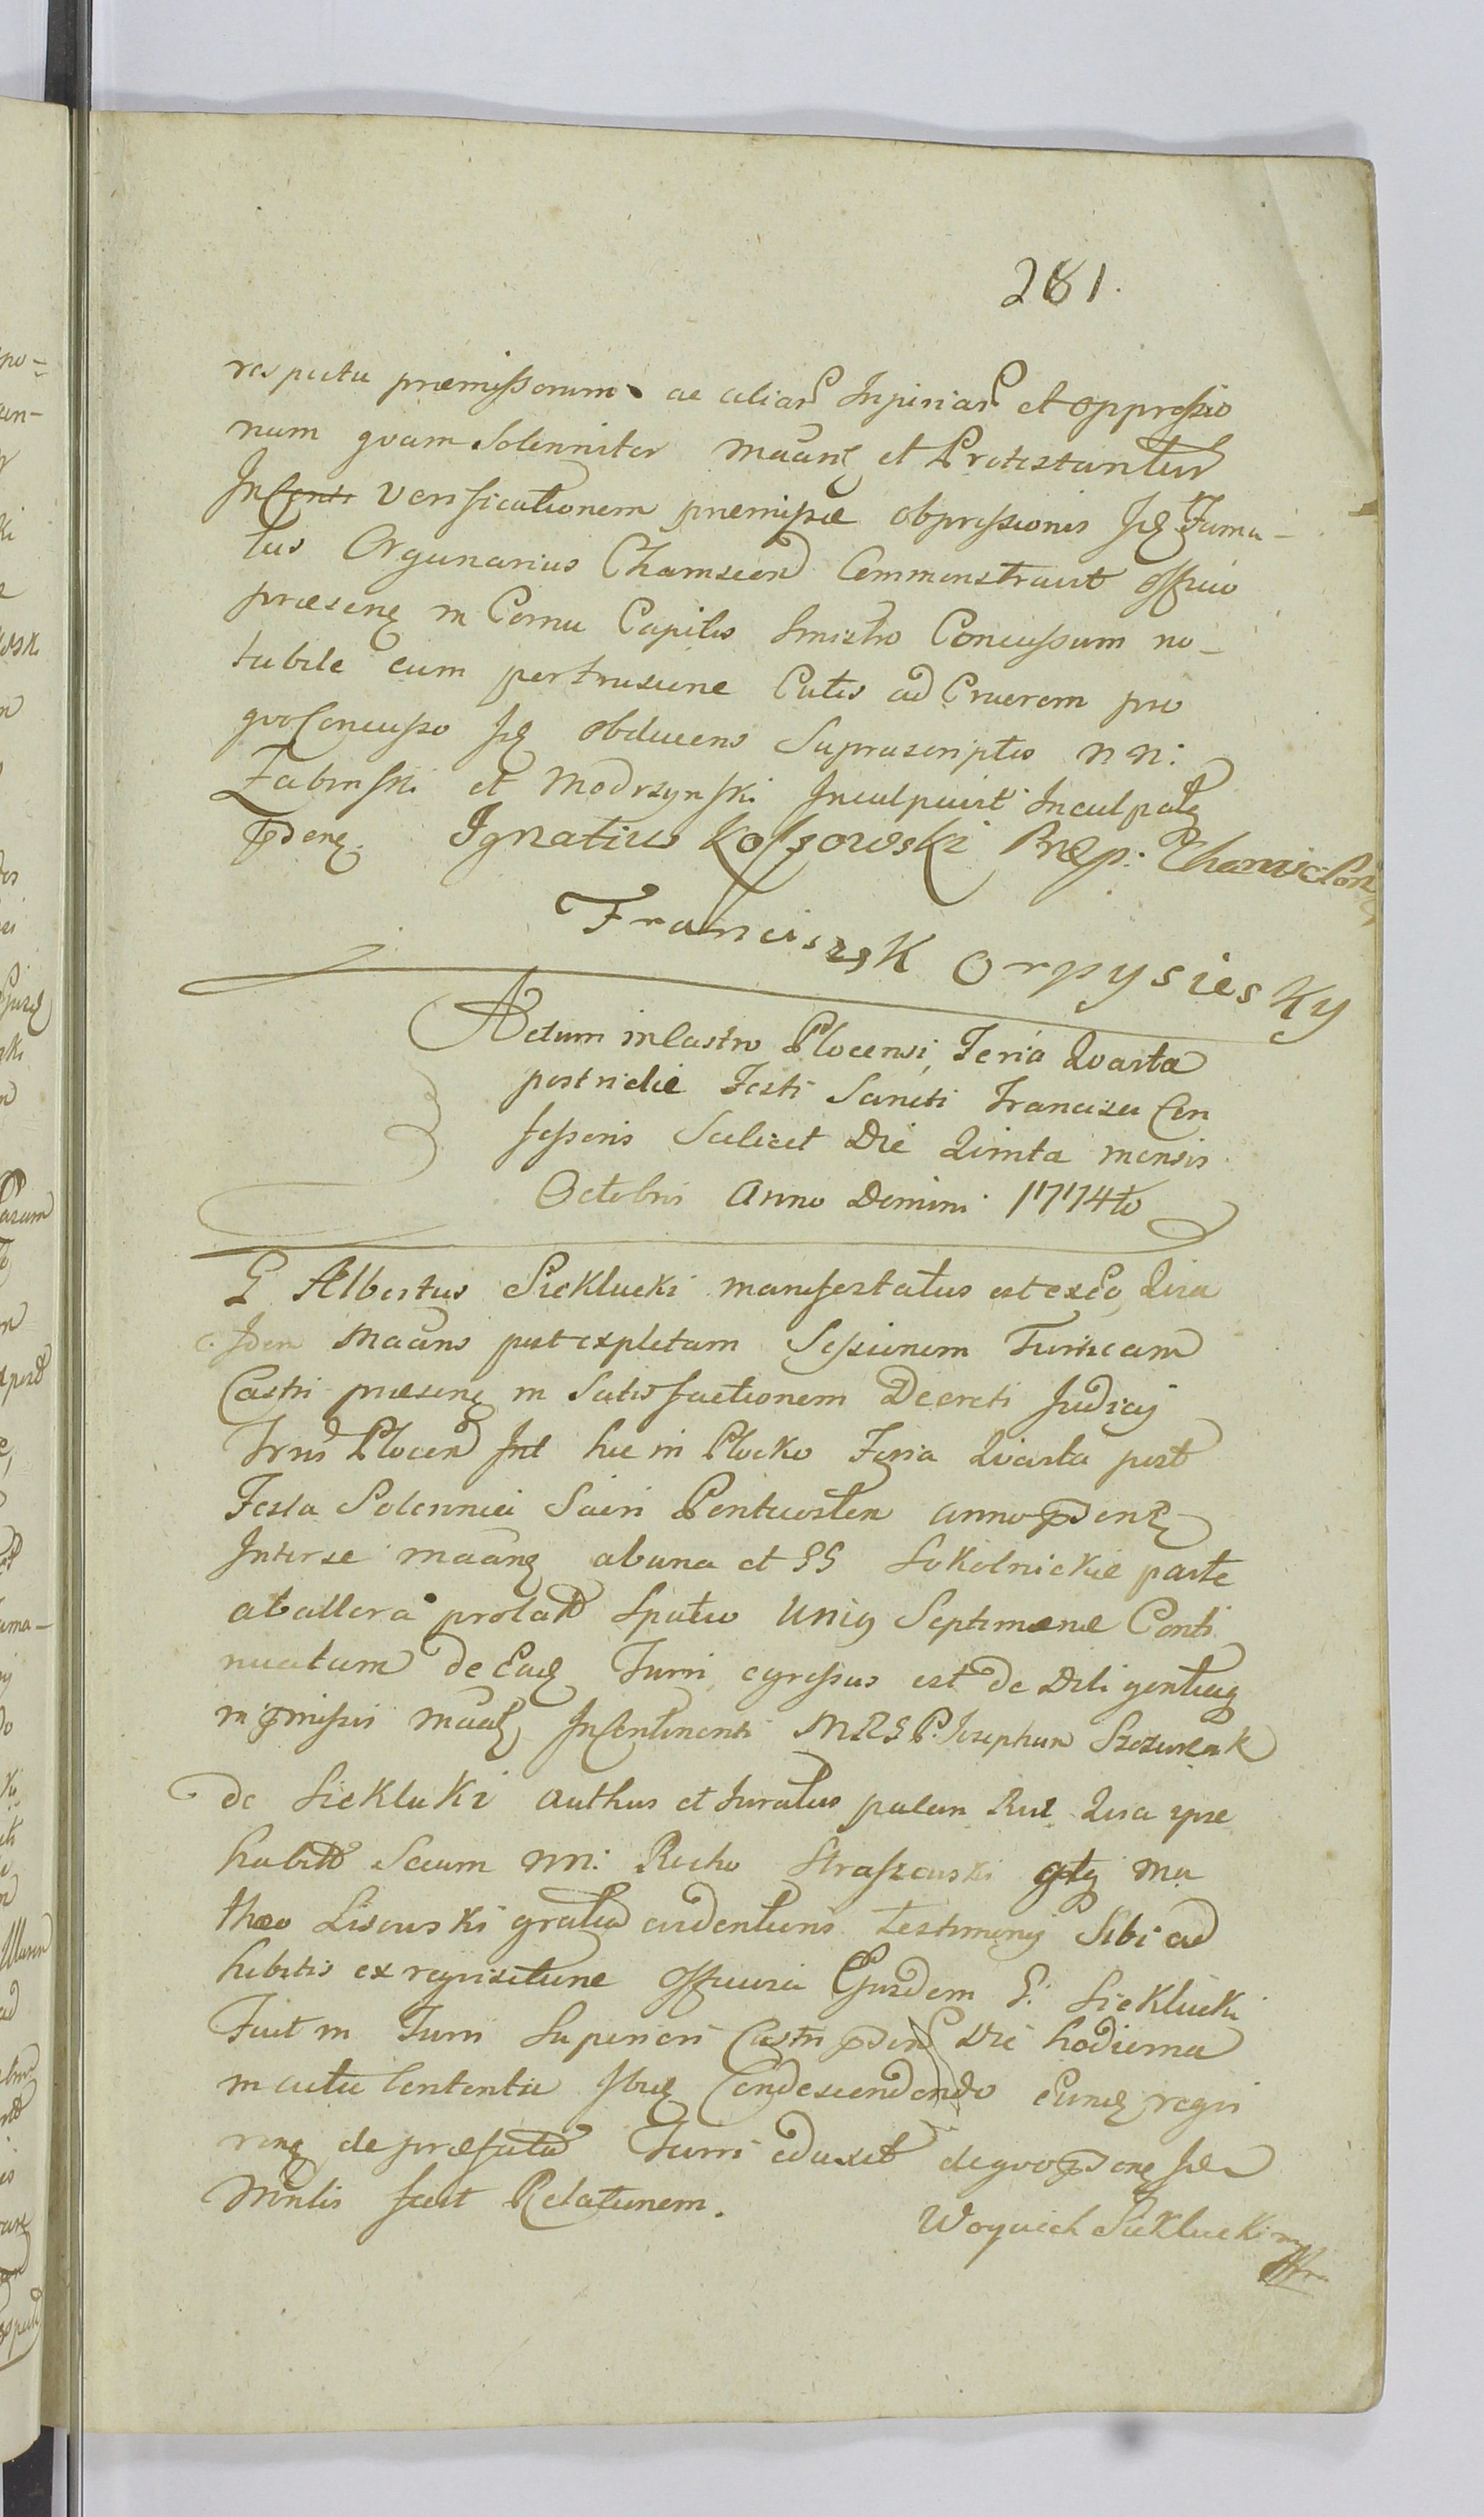 281.
respectu præmissorum ac aliar Injuriar et oppressio
num quam Solenniter maans et Protestantur
In verificationem præmissæ obpressionis Idem Fama-
tus Organarius Chamscen Commonstravit officio
præsenti in Cornu Capitis Sinistro Concussum no-
tabile cum pertrusione Cutis ad Cruorem pro
quo Concusso Idem obducens Suprascriptos NN:
Żabinski et Modrzynski Inculpavit Inculpatq
Ignatius Kossowski Præp:
Franciszek Orpysiesky
Actum in Castro Plocensi, Feria Quarta
postridie Festi Sancti Francisci Con
fessoris Scilicet Die Quinta mensis
Octobris Anno Domini 1774to
G Albertus Sieklucki manifestatus est ex eo, Quia
Iden maans post expletam Sessionem Turricam
Castri præsenq in Satisfactionem Decreti Judicij
Trnis Plocen hic in Plocko Feria Quarta post
Festa Solennia Sacri Pentecosten anno
Interse maanq ab una et GG Sokolnickie parte
ab altera prolat Spatio Unius Septimanæ Conti
nuatam de Eadq Turri egressus est de Diligentiaq
in præmissis maatq Incontinenti Josephum Szczurzak
de Siekluki authus et Juratus palam Quia ipse
habitis Secum NN: Rocho Straszewski Ma
theo Lisowski gratia evidentioris testimonij Sibi ad
hibitis ex requisitione officiosa Ejusdem G: Sieklucki
Fuit in Turri Superiori Castri Die hodierna
in actu contentis Ibiq Condescendendo Eundq requi
renq de præfata Turri eduxit de quo
Mnlis fecit Relationem.
Woyciech Sieklucki mpr